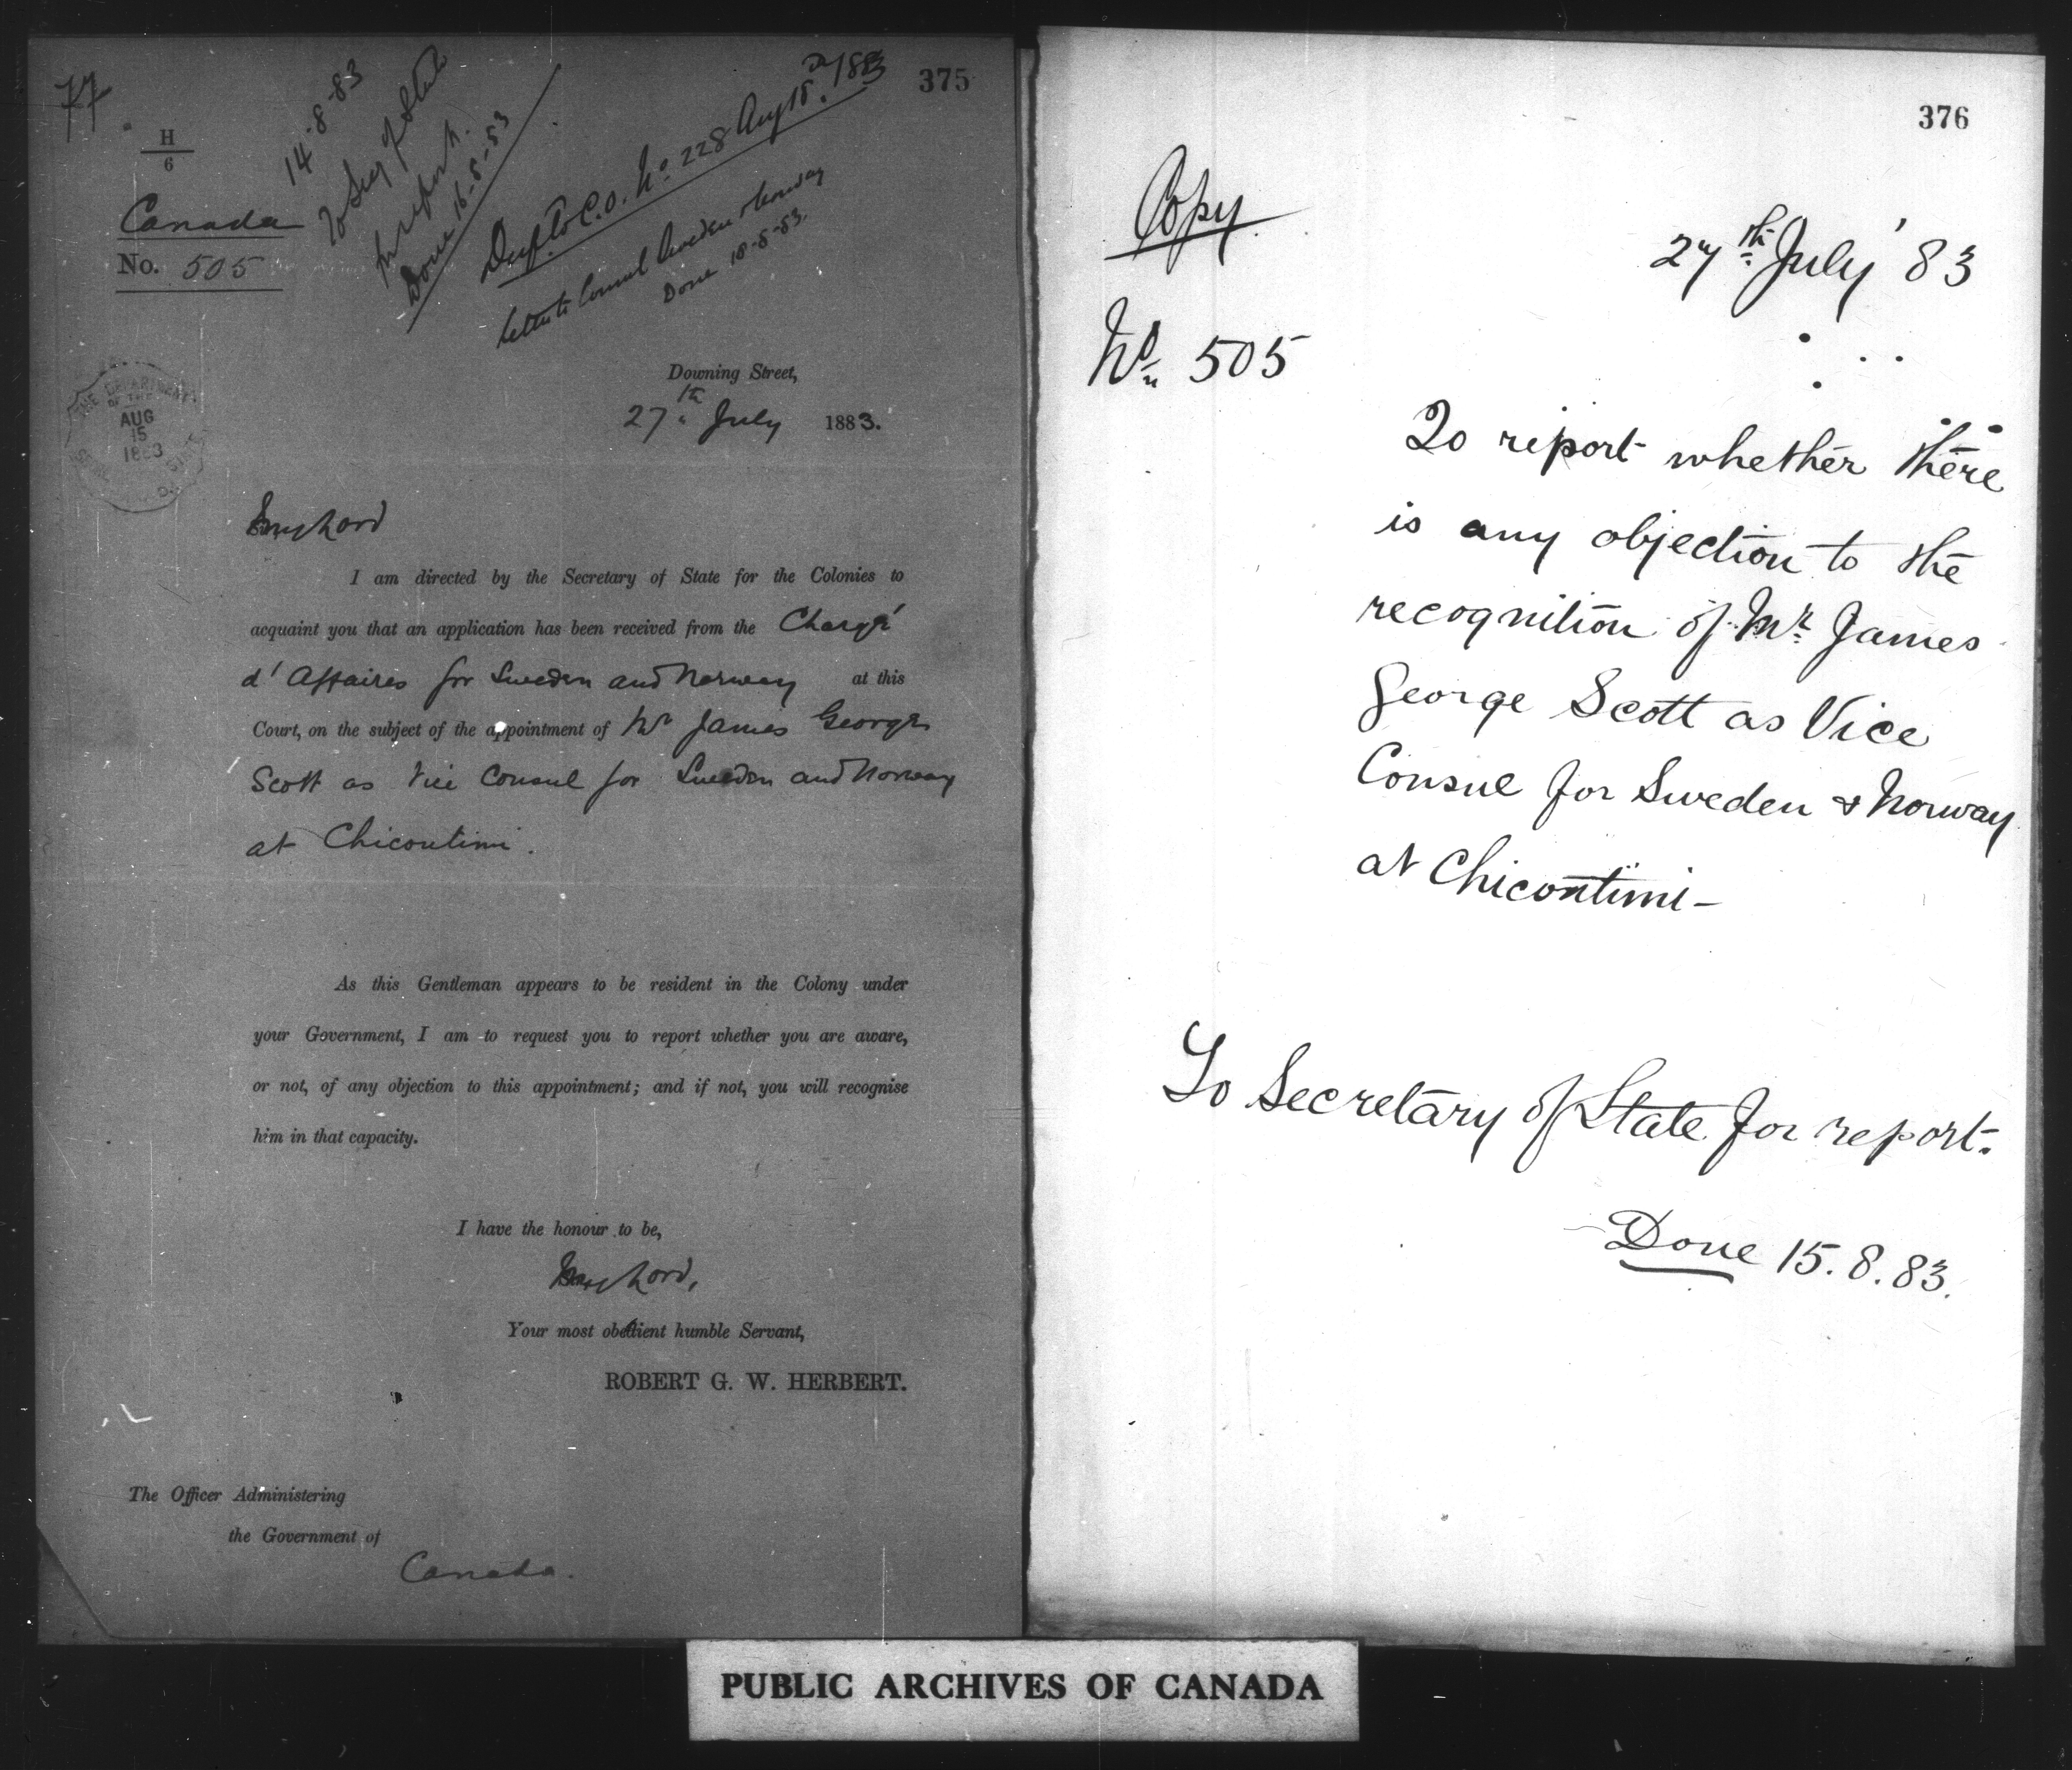 77
375
H
6
Canada
No. 505
14-8-83
To Secy of State
for report.
Done 16-8-83
Desp. to C.O. No. 228 Aug 18th 1883
Letter to Consul Sweden & Norway
Done 18-8-83.
THE DEPARTMENT
OF THE
AUG
15
1883
Downing Street,
27th July 1883.
My Lord
I am directed by the Secretary of State for the Colonies to
acquaint you that an application has been received from the Chargé
d'Affaires for Sweden and Norway at this
Court, on the subject of the appointment of Mr James George
Scott as Vice Consul for Sweden and Norway
at Chicoutimi.
As this Gentleman appears to be resident in the Colony under
your Government, I am to request you to report whether you are aware,
or not, of any objection to this appointment; and if not, you will recognise
him in that capacity.
I have the honour to be,
My Lord,
Your most obedient humble Servant,
ROBERT G. W. HERBERT.
The Officer Administering
the Government of
Canada.
376
Copy
27th July '83
No. 505
To report whether there
is any objection to the
recognition of Mr. James
George Scott as Vice
Consul for Sweden & Norway
at Chicontimi-
To Secretary of State for report.
Done 15.8.83.
PUBLIC ARCHIVES OF CANADA